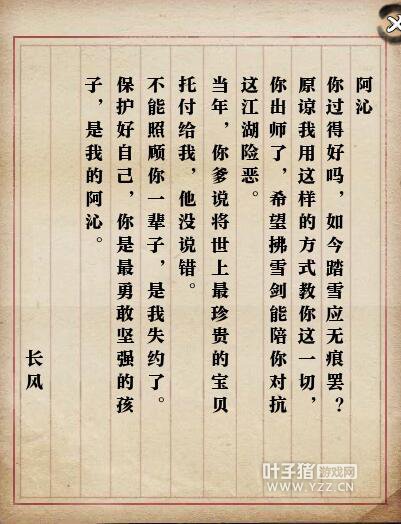 阿沁
你过得好吗，如今踏雪应无痕罢？
原谅我用这样的方式教你这一切，
你出师了，希望拂雪剑能陪你对抗
这江湖险恶。
当年，你爹说将世上最珍贵的宝贝
托付给我，他没说错。
不能照顾你一辈子，是我失约了。
保护好自己，你是最勇敢坚强的孩
子，是我的阿沁。
长风
叶子猪游戏网
WWW.YZZ.CN